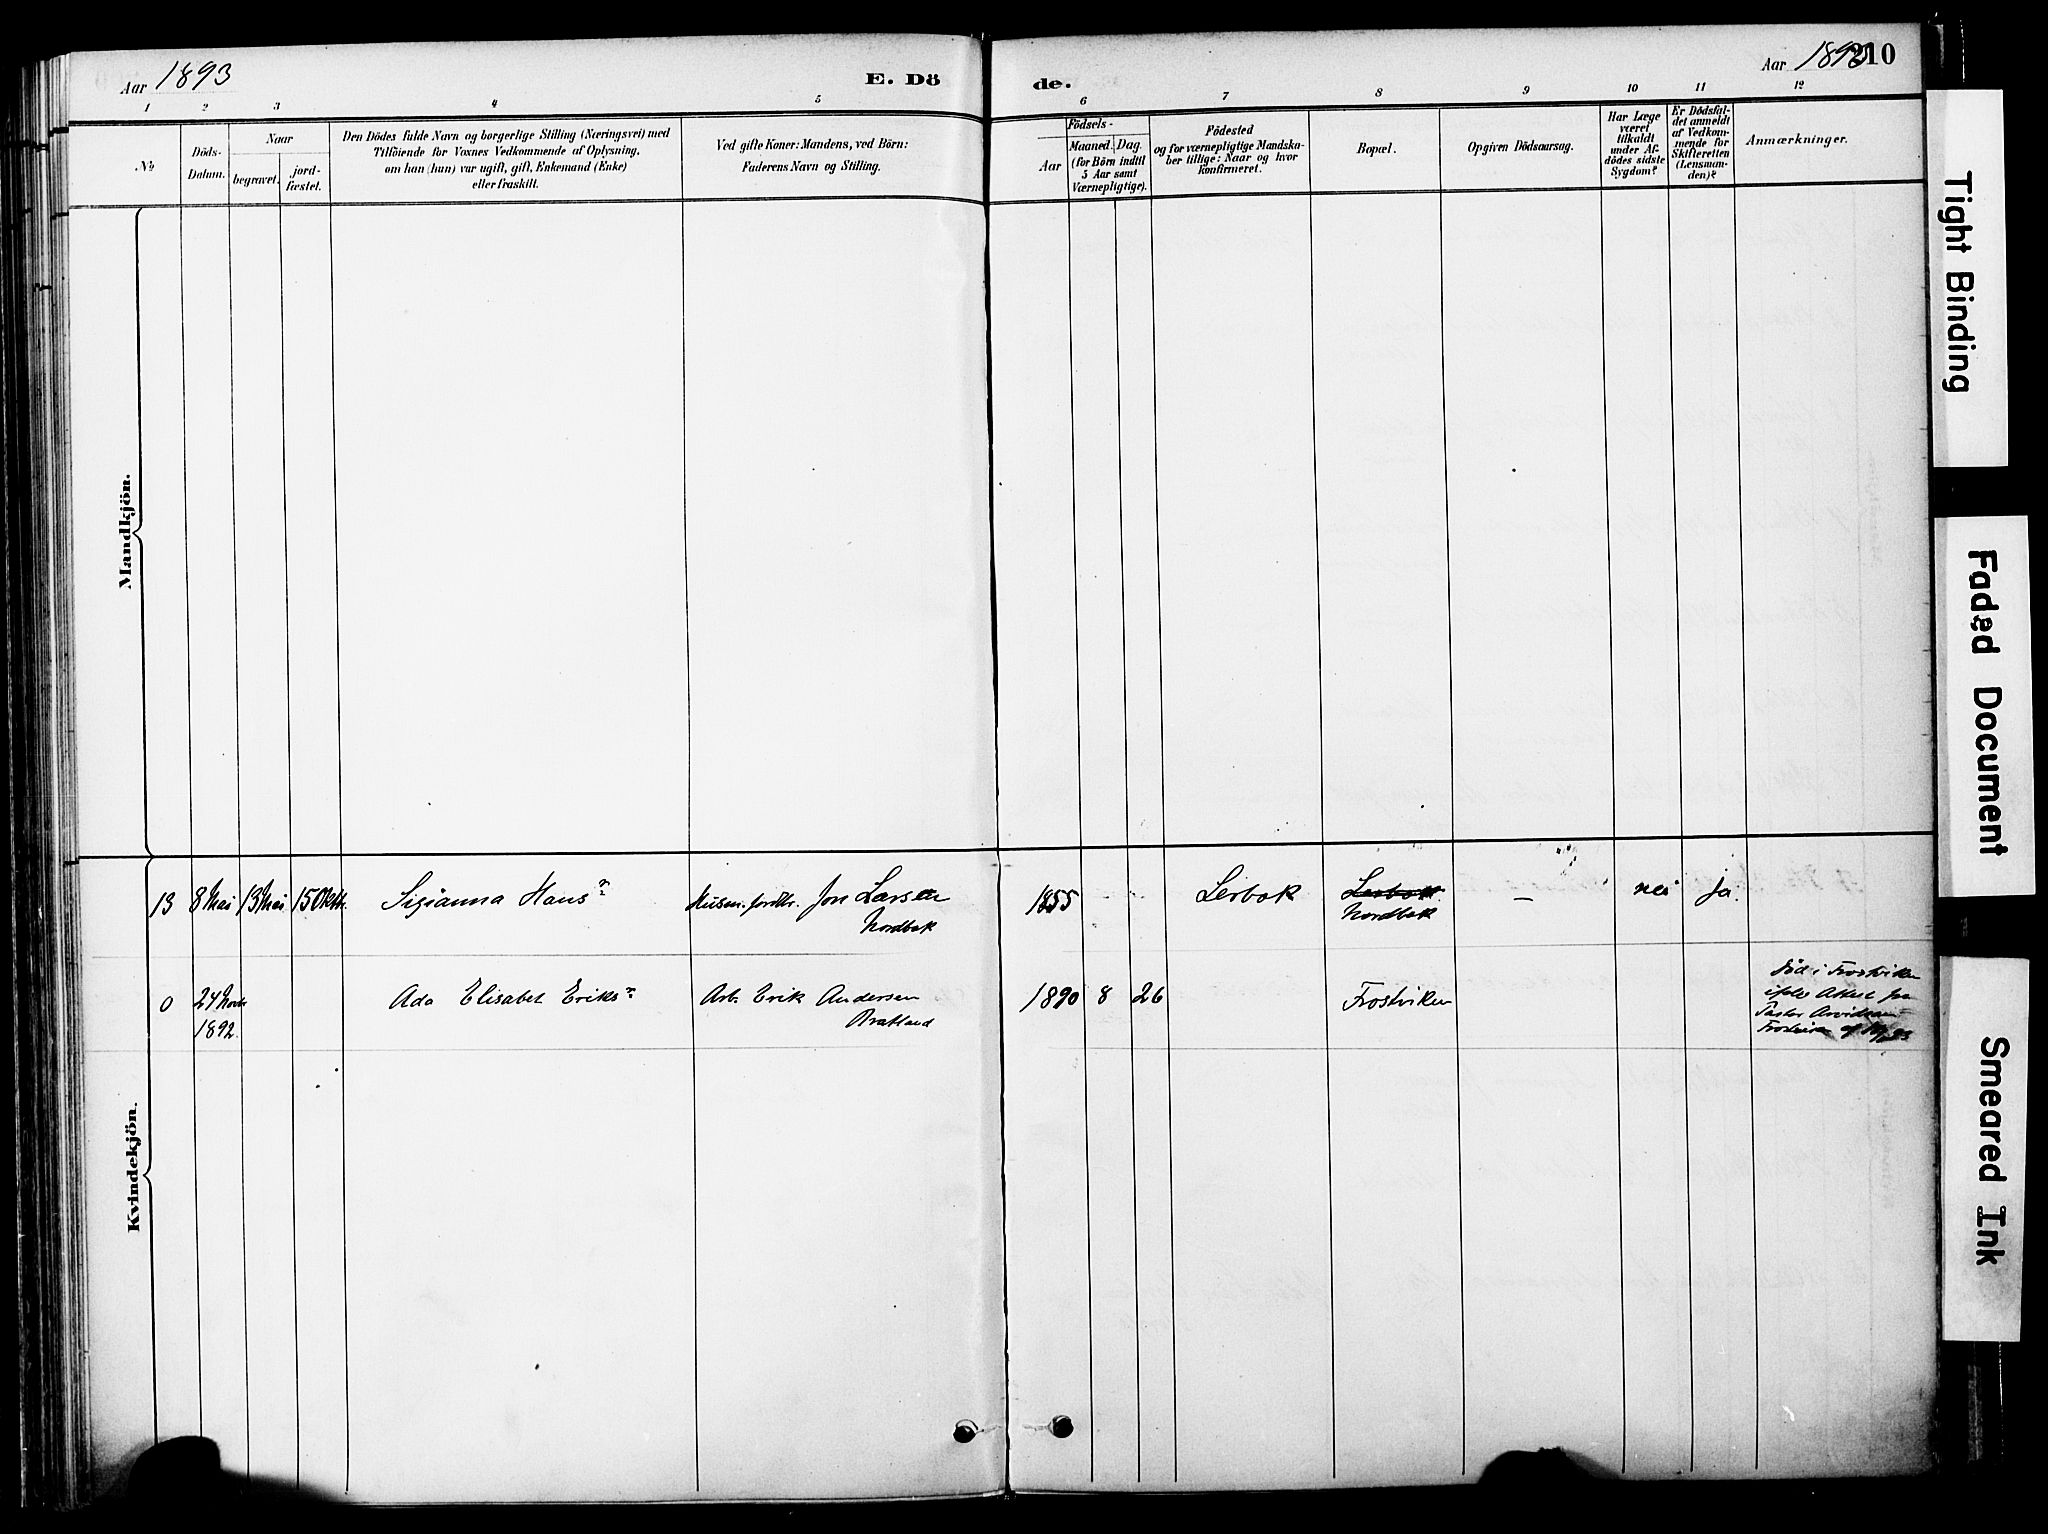 Aar 1893
E. Dö
de.
Aar 1893
210
1 2 3 4 5 6 7 8 9 10 11 12
№
Döds-
Datum.
Naar
begravet.
jord-
fæstet.
Den Dödes fulde Navn og borgerlige Stilling (Næringsvei) med
Tilföiende for Voxnes Vedkommende af Oplysning,
om han (hun) var ugift, gift, Enkemand (Enke)
eller fraskilt.
Ved gifte Koner: Mandens, ved Börn:
Faderens Navn og Stilling.
Födsels-
Aar
Maaned. Dag.
(for Börn indtil
5 Aar samt
Værnepligtige).
Födested
og for værnepligtige Mandska-
ber tillige: Naar og hvor
konfirmeret.
Bopæl.
Opgiven Dödsaarsag.
Har Læge
været
tilkaldt
under Af-
dödes sidste
Sygdom?
Er Dödsfal-
det anmeldt
af Vedkom-
mende for
Skifteretten
(Lensman-
den)?
Anmærkninger.
Mandkjön.
13 8 Mai 13 Mai 15 Oktb. Sigianna Hansn Husm. fordhv. Jon Larsen 1855 Lerbak Lerbak nei ja.
Nordbak Nordbak —
0 24 Novbr Ada Elisabet Eriksn Arb. Erik Andersen 1890 8 26 Frostviken
1892. Bratland
död i Frostviken
ifölge Attest fra
Pastor Arvidson
Frostviken af
Kvindekjön.
Tight Binding
Faded Document
Smeared Ink